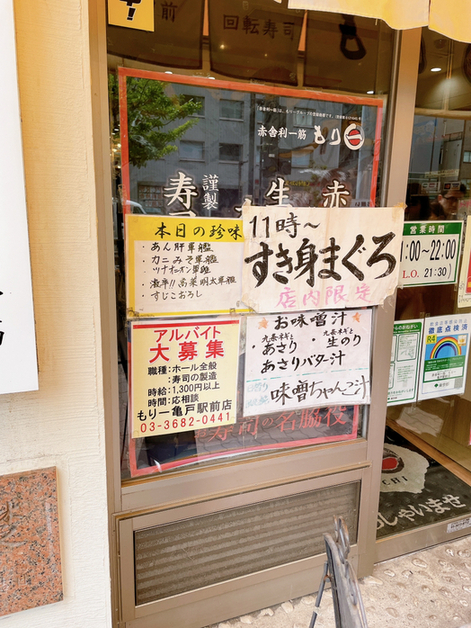 前
回転寿司
赤舎利一筋
もり一
謹製
寿
生
赤
本日の珍味
・あん肝軍艦
・カニみそ軍艦
・ツナオニオン軍艦
・激辛!!高菜明太軍艦
・すじこおろし
11時～
すき身まぐろ
店内限定
営業時間
11:00～22:00
(L.O. 21:30)
アルバイト
大募集
職種:ホール全般
:寿司の製造
時給:1,300円以上
時間:応相談
もり一亀戸駅前店
03-3682-0441
★お味噌汁★
九条ネギと
あさり・
九条ネギと
生のり
あさりバター汁
味噌ちゃんこ汁
寿司の名脇役
R4
徹底点検済
いらっしゃいませ